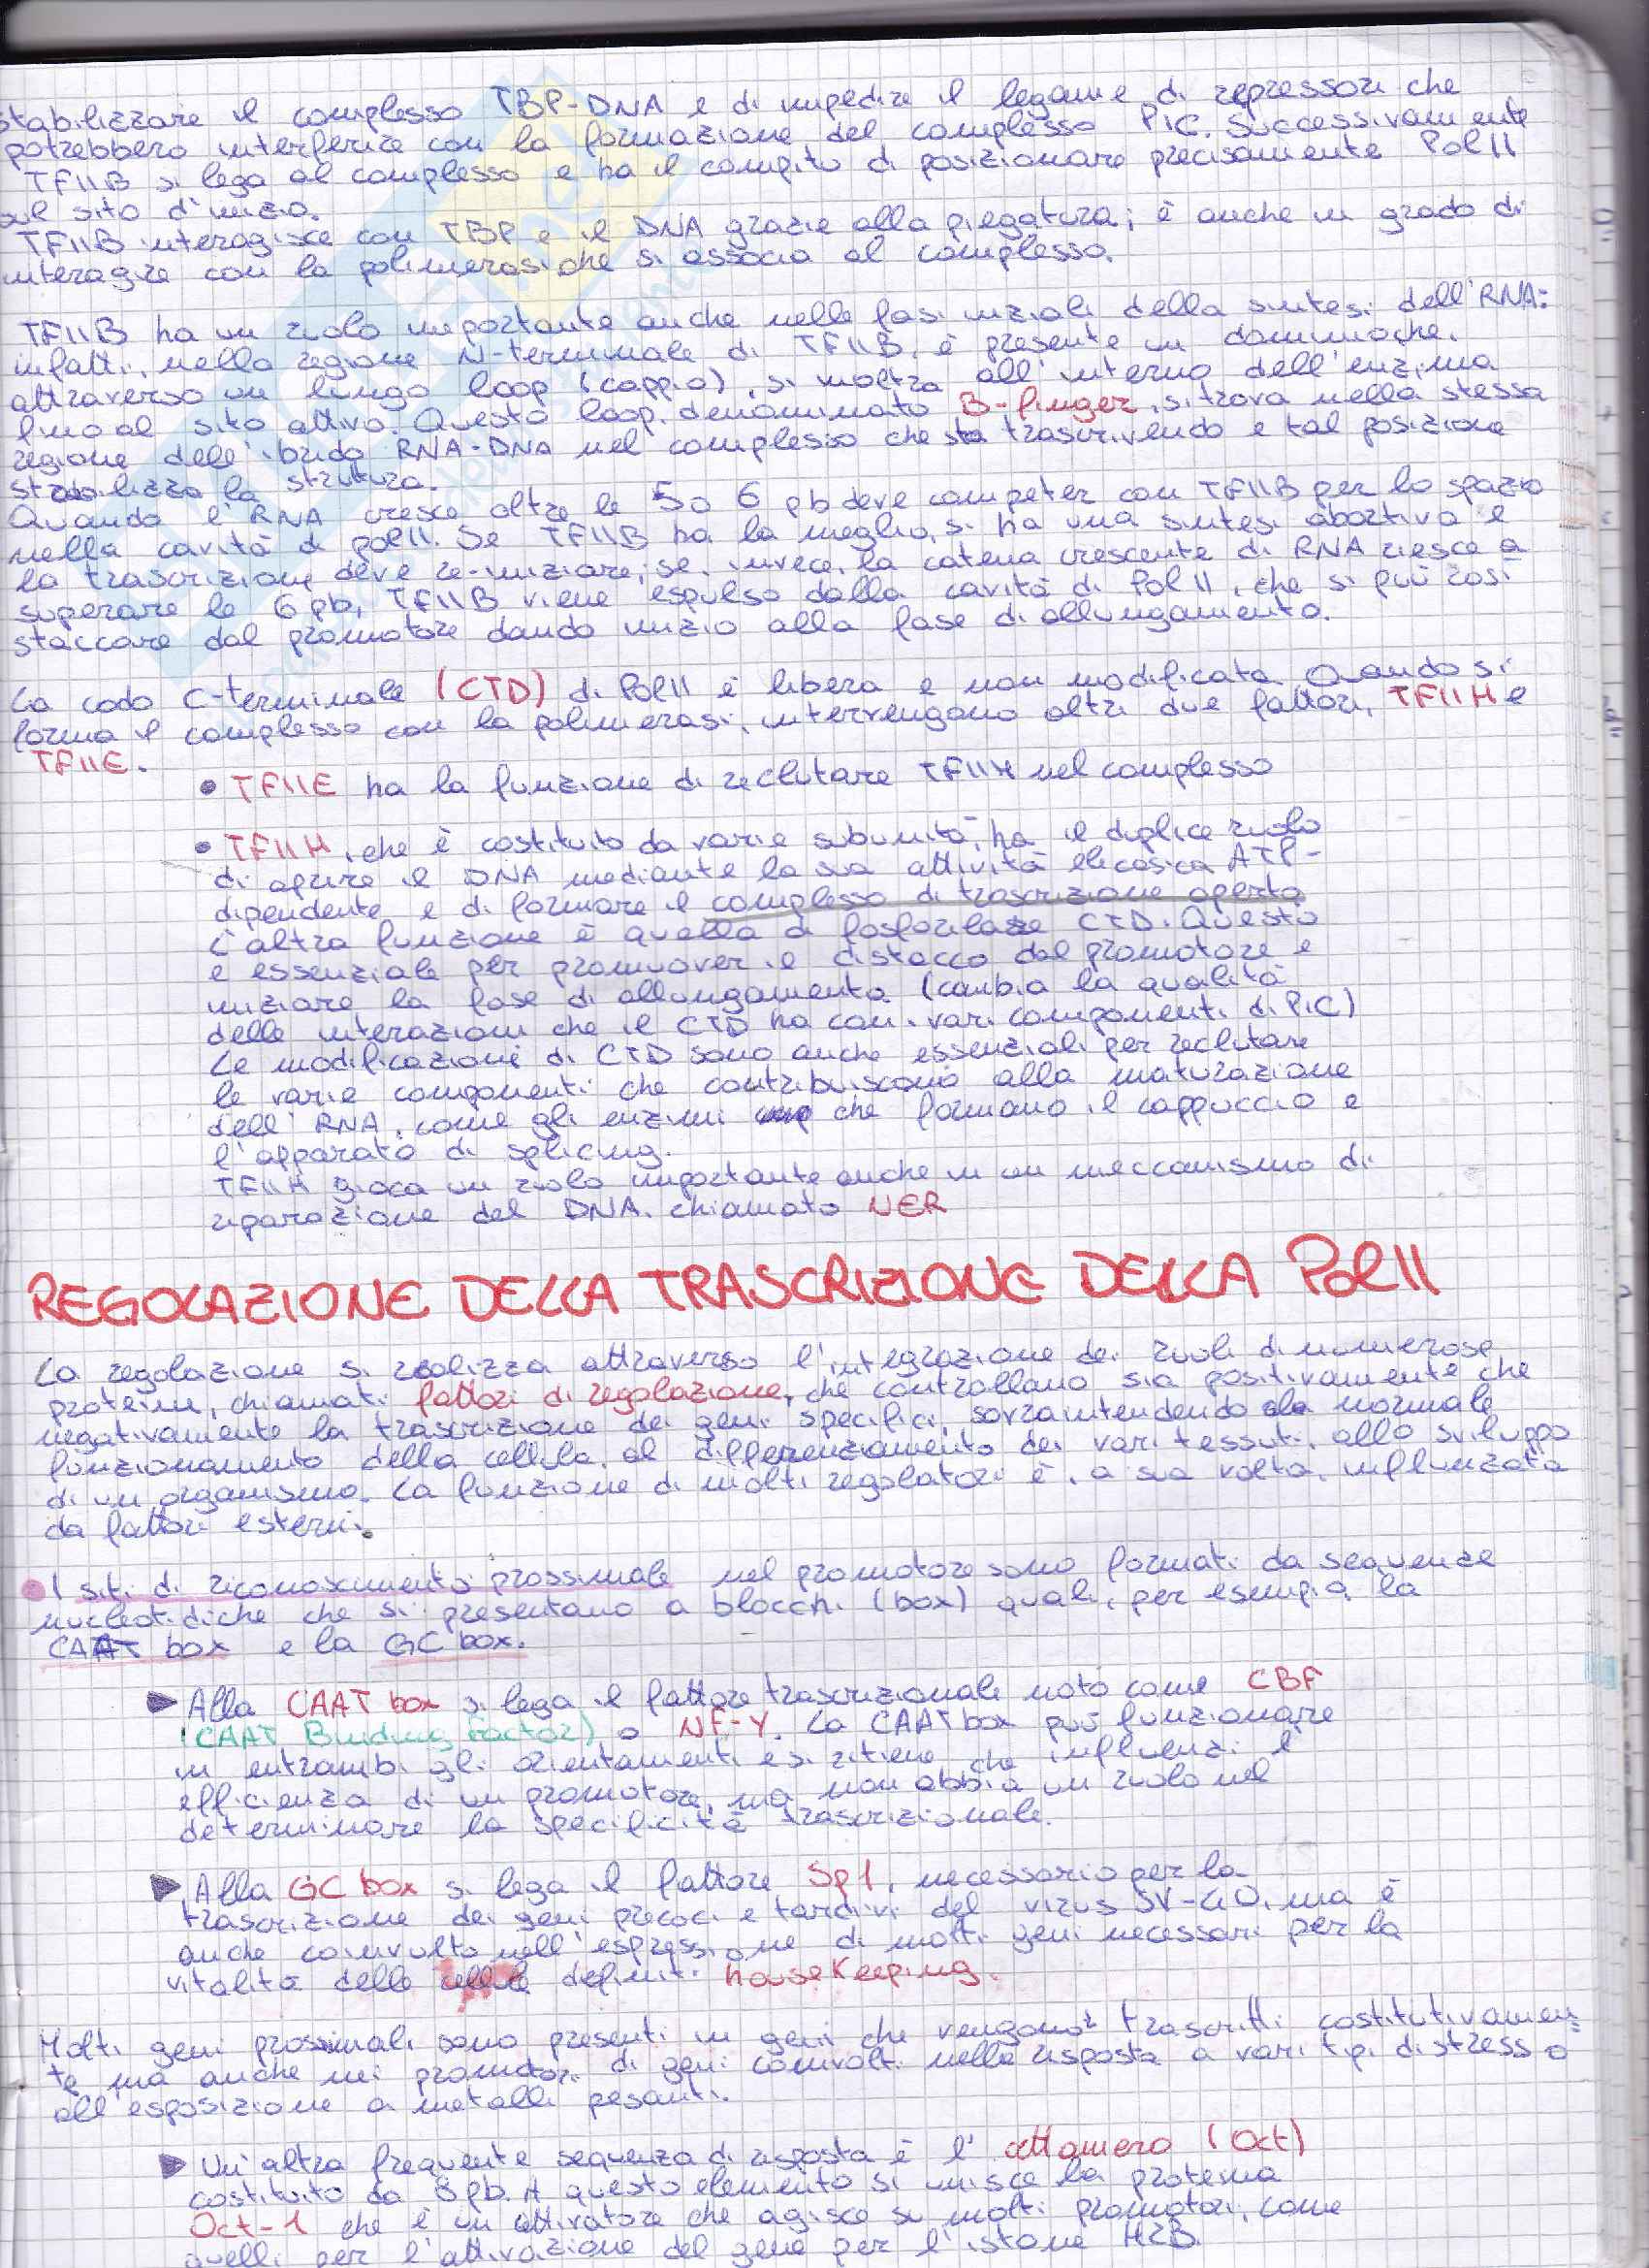 stabilizzare il complesso TBP-DNA e di impedire il legame di repressori che
potrebbero interferire con la formazione del complesso PIC. Successivamente
TFIIB si lega al complesso e ha il compito di posizionare precisamente Pol II
sul sito d'inizio.
TFIIB interagisce con TBP e il DNA grazie alla piegatura; è anche in grado di
interagire con la polimerasi che si associa al complesso.
TFIIB ha un ruolo importante anche nelle fasi iniziali della sintesi dell'RNA:
infatti, nella regione N-terminale di TFIIB, è presente un dominio che,
attraverso un lungo loop (cappio), si inoltra all'interno dell'enzima
fino al sito attivo. Questo loop, denominato B-finger, si trova nella stessa
regione dell'ibrido RNA-DNA nel complesso che sta trascrivendo e tal posizione
stabilizza la strutura.
Quando l'RNA cresce oltre le 5 o 6 pb deve competer con TFIIB per lo spazio
nella cavità di pol II. Se TFIIB ha la meglio, si ha una sintesi abortiva e
la trascrizione deve re-iniziare; se, invece, la catena crescente di RNA riesce a
superare le 6 pb, TFIIB viene espulso dalla cavità di Pol II, che si può così
staccare dal promotore dando inizio alla fase di allungamento.
La coda C-terminale (CTD) di Pol II è libera e non modificata. Quando si
forma il complesso con la polimerasi, intervengono altri due fattori, TFIIH e
TFIIE.
• TFIIE ha la funzione di reclutare TFIIH nel complesso
• TFIIH, che è costituito da varie subunità, ha il duplice ruolo
di aprire il DNA mediante la sua attività elicasica ATP-
dipendente e di formare il complesso di trascrizione aperto
L'altra funzione è quella di fosforilare CTD. Questo
e essenziale per promuover il distacco dal promotore e
iniziare la fase di allungamento. (cambia la qualità
delle interazioni che il CTD ha con i vari componenti di PIC)
Le modificazioni di CTD sono anche essenziali per reclutare
le varie componenti che contribuiscono alla maturazione
dell'RNA, come gli enzimi che formano il cappuccio e
l'apparato di splicing.
TFIIH gioca un ruolo importante anche in un meccanismo di
riparazione del DNA chiamato NER
REGOLAZIONE DELLA TRASCRIZIONE DELLA Pol II
La regolazione si realizza attraverso l'integrazione dei ruoli di numerose
proteine, chiamati fattori di regolazione, che controllano sia positivamente che
negativamente la trascrizione dei geni specifici, sovraintendendo al normale
funzionamento della cellula, al differenziamento dei vari tessuti, allo sviluppo
di un organismo. La funzione di molti regolatori è, a sua volta, influnzata
da fattori esterni.
• I siti di riconoscimento prossimale nel promotore sono formati da sequenze
nucleotidiche che si presentano a blocchi (box) quali, per esempio, la
CAAT box e la GC box.
▶ Alla CAAT box si lega il fattore trascrizionale noto come CBF
(CAAT Binding Factor) o NF-Y. La CAAT box può funzionare
in entrambi gli orientamenti e si ritiene che influenzi l'
efficienza di un promotore, ma non abbia un ruolo nel
determinare la specificità trascrizionale.
▶ Alla GC box si lega il fattore Sp1, necessario per la
trascrizione dei geni precoci e tardivi del virus SV-40, ma è
anche coinvolto nell'espressione di molti geni necessari per la
vitalità delle cellule definiti housekeeping.
Molti geni prossimali sono presenti in geni che vengono trascritti costitutivamen-
te ma anche nei promotori di geni coinvolti nella risposta a vari tipi di stress o
all'esposizione a metalli pesanti.
▶ Un'altra frequente sequenza di risposta è l'ottamero (Oct)
costituito da 8 pb. A questo elemento si unisce la proteina
Oct-1 che è un attivatore che agisce su molti promotori, come
quelli per l'attivazione del gene per l'istone H2B.